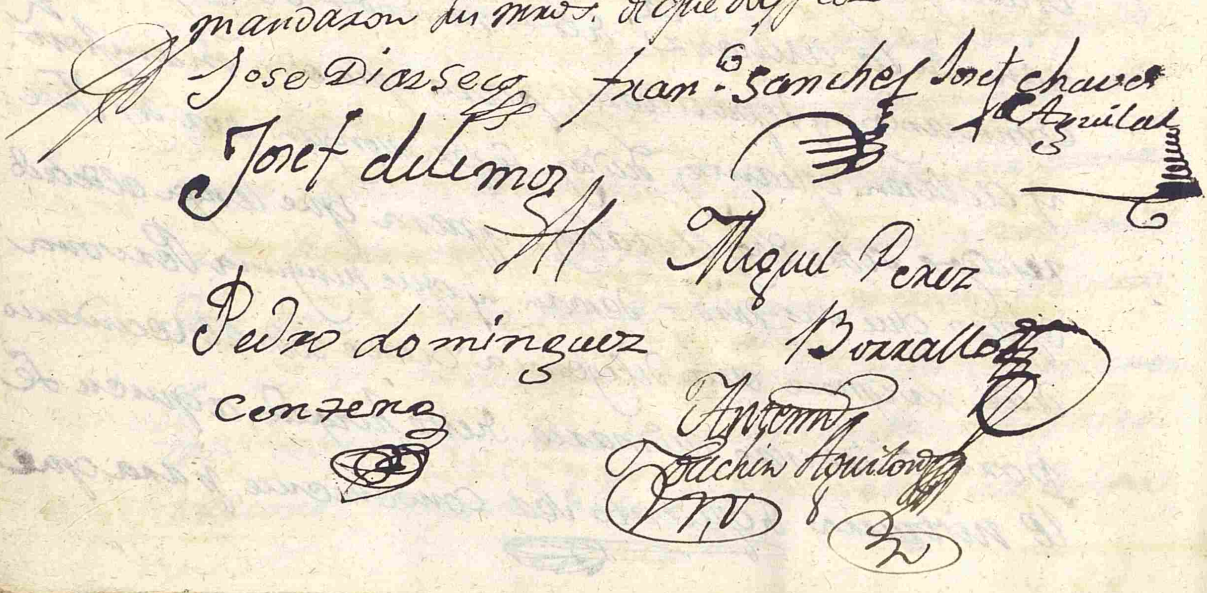 mandaron sus mrds. de que doy fee
Jose Diaz seco fran.co Sanches Josef chaves
Aguilar
Josef de lemos
Miguel Perez
Pedro dominguez Borrallo
Centeno Antonio
Joachin Aguilar